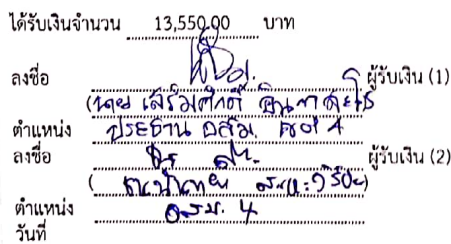 ได้รับเงินจำนวน 13,550.00 บาท
ลงชื่อ ผู้รับเงิน (1)
(นาย เสริมศักดิ์
ตำแหน่ง ประธาน อสม. หมู่ 4
ลงชื่อ ผู้รับเงิน (2)
ตำแหน่ง อสม. 4
วันที่